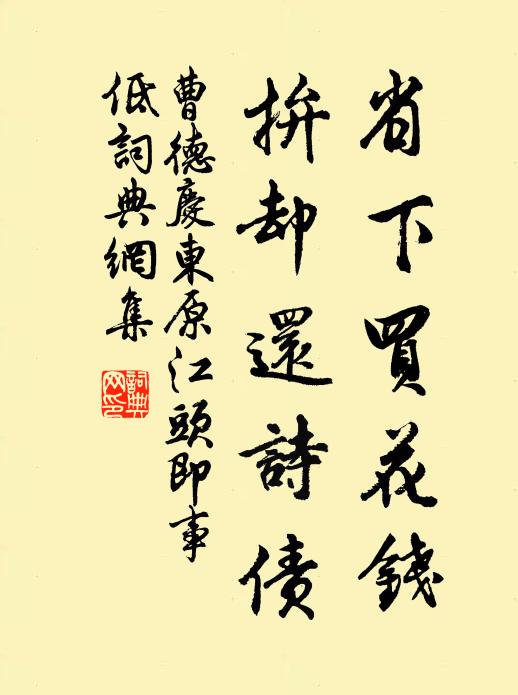 省下買花錢
拚却還詩債
曹德慶東原江頭即事
低詞典網集
詞典網印